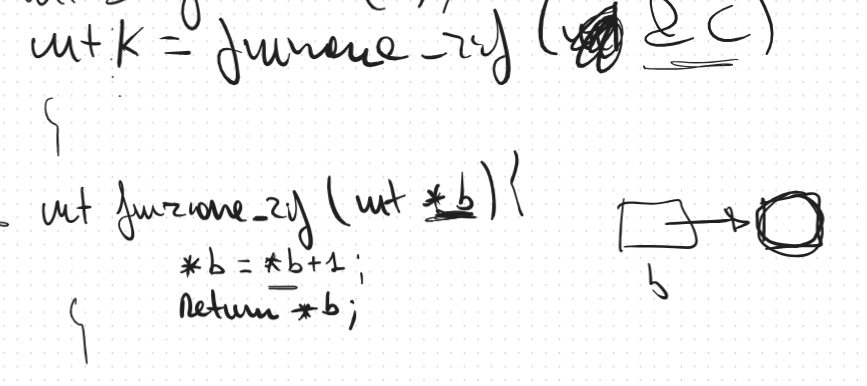 int k = funzione_rif (&c)
}
int funzione_rif (int *b) {
*b = *b+1;
Return *b;
}
b